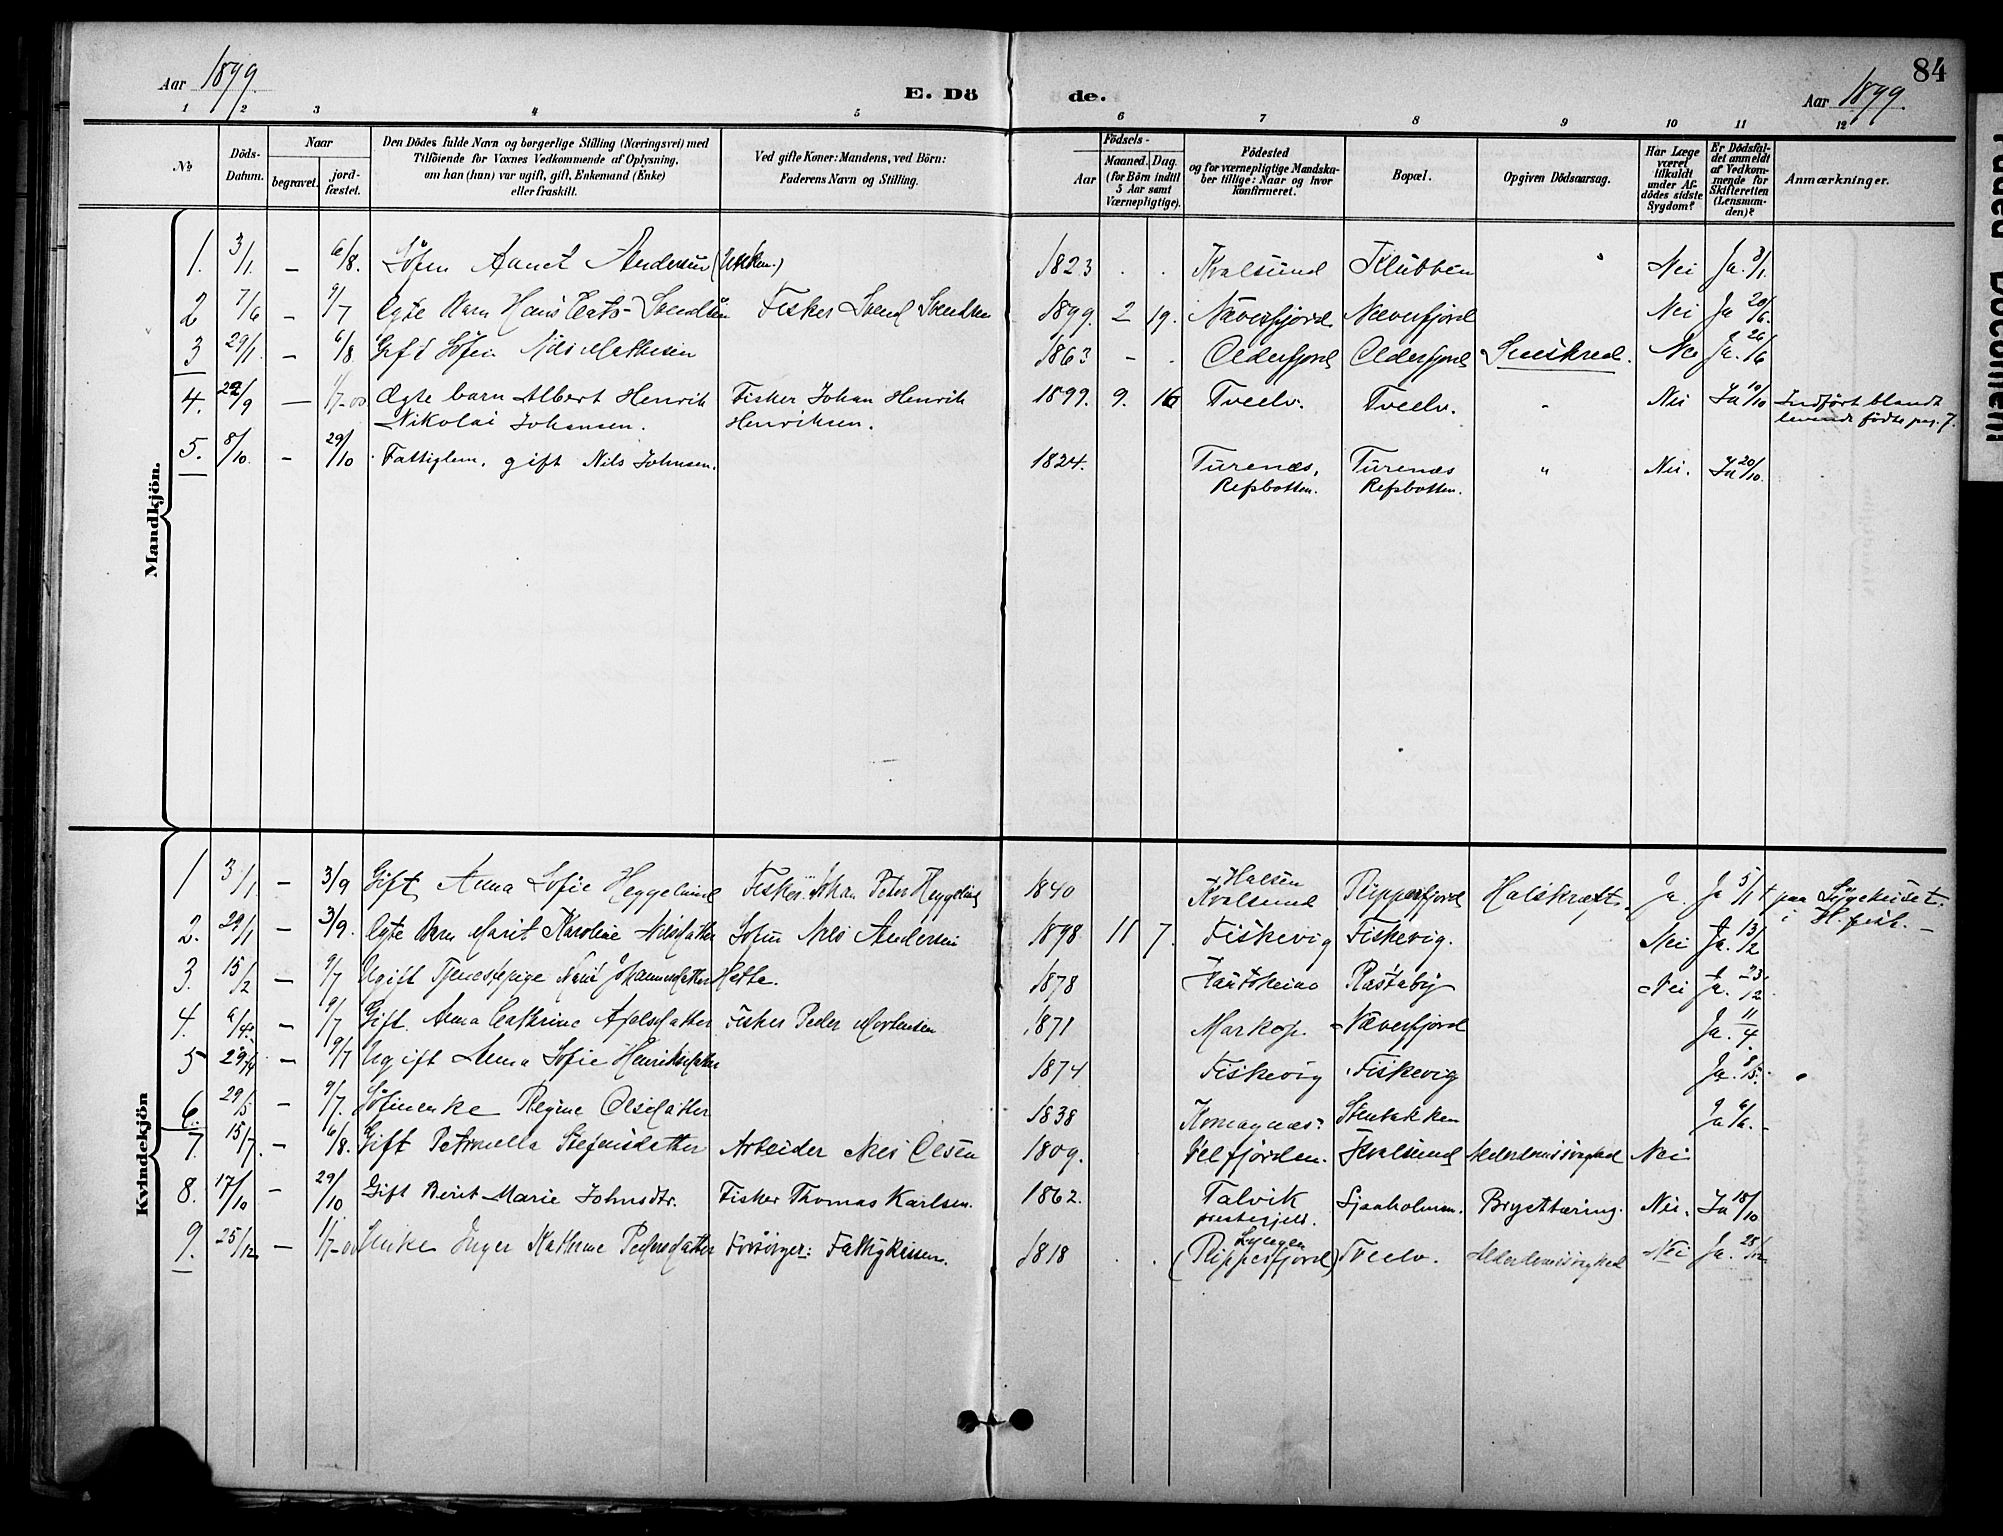 84
Aar 1899
E. Döde.
Aar 1899.
1 2 3 4 5 6 7 8 9 10 11 12
No
Döds-Datum.
Naar
begravet.
jord-fæstet.
Den Dödes fulde Navn og borgerlige Stilling (Næringsvei) med
Tilföiende for Voxnes Vedkommende af Oplysning,
om han (hun) var ugift, gift, Enkemand (Enke)
eller fraskilt.
Ved gifte Koner: Mandens, ved Börn:
Faderens Navn og Stilling.
Födsels-
Aar
Maaned. Dag.
(for Börn indtil
5 Aar samt
Værnepligtige).
Födested
og for værnepligtige Mandska-
ber tillige: Naar og hvor
konfirmeret.
Bopæl.
Opgiven Dödsaarsag.
Har Læge
været
tilkaldt
under Af-
dödes sidste
Sygdom?
Er Dödsfal-
det anmeldt
af Vedkom-
mende for
Skifteretten
(Lensman-
den)?
Anmærkninger.
Mandkjön.
1. 3/1. — 6/8. Andersen 1823 . . Kvalsund Klubben Nei Ja. 3/1.
2 7/6 — 9/7 Ægte Barn Hans Svendsen Fisker Svend Svendsen 1899. 2 19. Næverfjord Næverfjord Nei Ja 20/6.
3 29/1. — 6/8 Gift Nils Mathisen 1863 - . Olderfjord Olderfjord Sneskred. Nei Ja. 26/6
4. 22/9 — 1/7-00 Ægte barn Albert Henrik Fisker Johan Henrik 1899. 9. 16 Tveelv. Tveelv. " Nei Ja 10/10 Indført blandt
Nikolai Johansen. Henriksen. levende fødte pag. 7.
5. 8/10. - 29/10 Fattiglem, gift Nils Johnsen. 1824. Turenæs, Turenæs " Nei. Ja 20/10.
Refsbotten. Refsbotten.
Kvindekjön
1 3/1. — 3/9 Gift Anna Sofie Heggelund Fisker Johan Peter Heggelund 1840 Halsen Ripperfjord Ja. Ja 5/1 paa Sygehuset
Kvalsund i
2. 29/1 — 3/9. Ægte Barn Marit Karoline Nilsdatter Nils Andersen 1898 11 7. Fiskevig Fiskevig. Nei Ja. 13/2
3. 15/2 — 9/7 Ugift Tjenestepige Johannesdatter Hætta. 1878 Kautokeino Nei Ja. 23/12.
4. 6/4. — 9/7 Gift. Anna Cathrine Fisker Peder Mortensen 1871 Markop. Næverfjord Ja. 11/4.
5 29/4 — 9/7 Ugift Anna Sofie Henriksdatter 1874 Fiskevig Fiskevig Ja. 8/5.
6. 29/5 — 9/7. Regine Olsdatter 1838 Komagnæs Stenbakken Ja 6/6.
7. 15/7. — 6/8. Gift Petronella Stefensdatter Arbeider Nils Olsen 1809. Kvalsund Alderdomssvaghed Nei
8. 17/10 — 29/10 Gift Berit Marie Johnsdtr. Fisker Thomas Karlsen. 1862. Talvik Sjaaholmen. Brysttæring. Nei. Ja 18/10
prestegjeld.
9. 25/12 — 1/7-00 Enke Inger Kathrine Pedersdatter Forsørger: Fattigkassen. 1818 . . Lyngen Tveelv. Alderdomssvaghed Nei Ja. 28/12
(Ripperfjord)